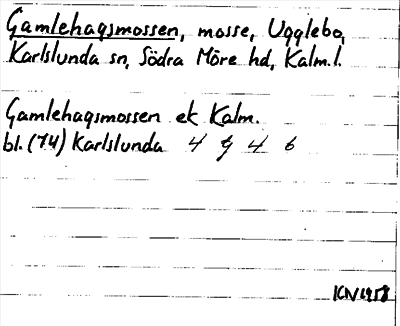 Gamlehagsmossen, mosse, Ugglebo,
Karlslunda sn, Södra Möre hd, Kalm.l.
Gamlehagsmossen ek Kalm.
bl. (74) Karlslunda 4 g 4 6